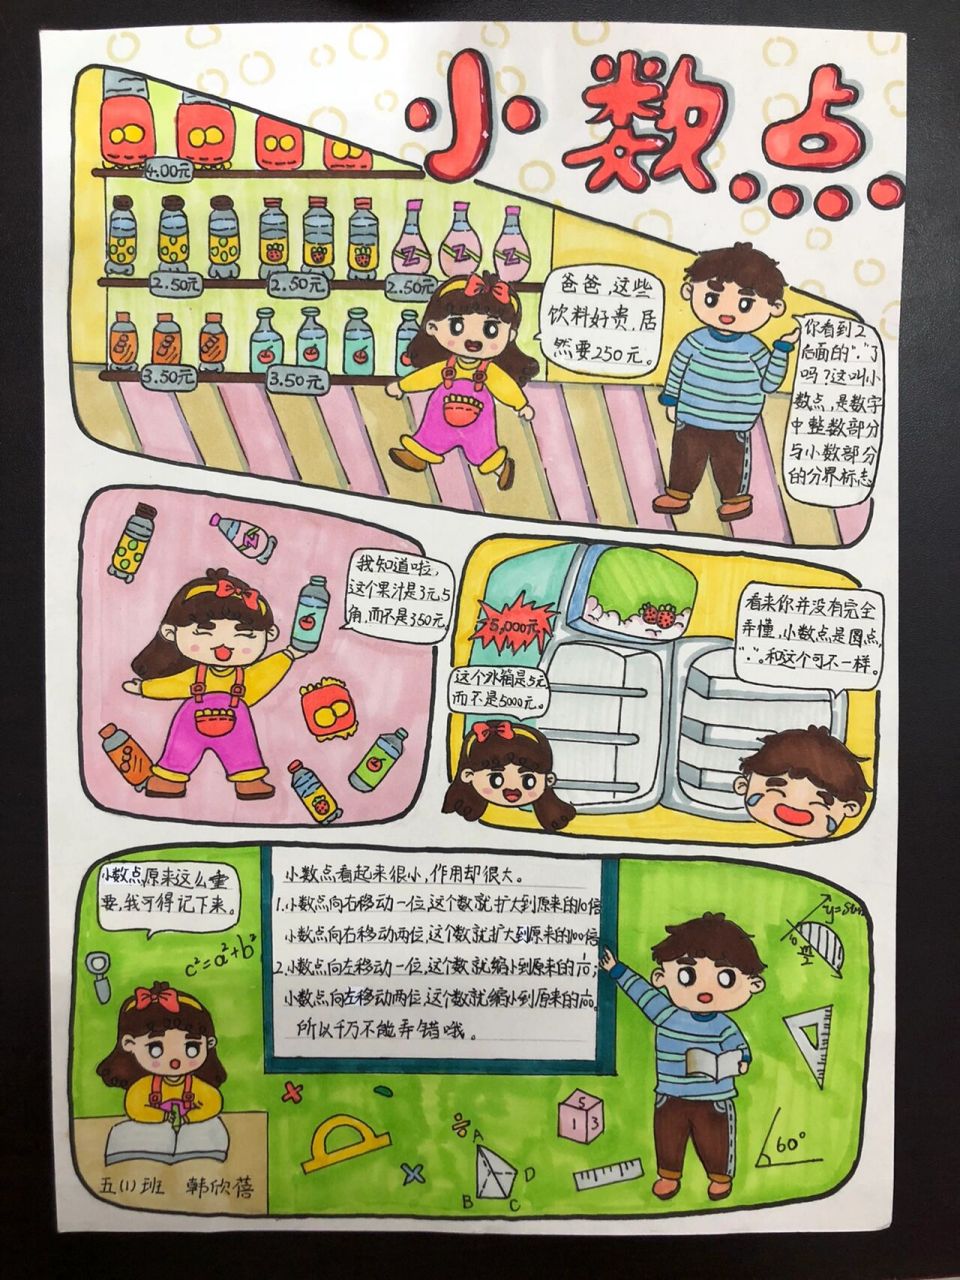 小数点
4.00元
2.50元
2.50元
2.50元
3.50元
3.50元
爸爸,这些
饮料好贵,居
然要250元。
你看到2
后面的"."了
吗?这叫小
数点,是数字
中整数部分
与小数部分
的分界标志
我知道啦,
这个果汁是3元5
角,而不是350元
5,000元
这个冰箱是5元
而不是5000元。
看来你并没有完全
弄懂,小数点是圆点,
"."。和这个可不一样。
小数点原来这么重
要,我可得记下来。
c²=a²+b²
小数点看起来很小,作用却很大。
1.小数点向右移动一位,这个数就扩大到原来的10倍
小数点向右移动两位,这个数就扩大到原来的100倍
2.小数点向左移动一位,这个数就缩小到原来的1/10;
小数点向左移动两位,这个数就缩小到原来的1/100。
所以千万不能弄错哦。
5
1 3
A
B
C
D
60°
五(1)班 韩欣蓓